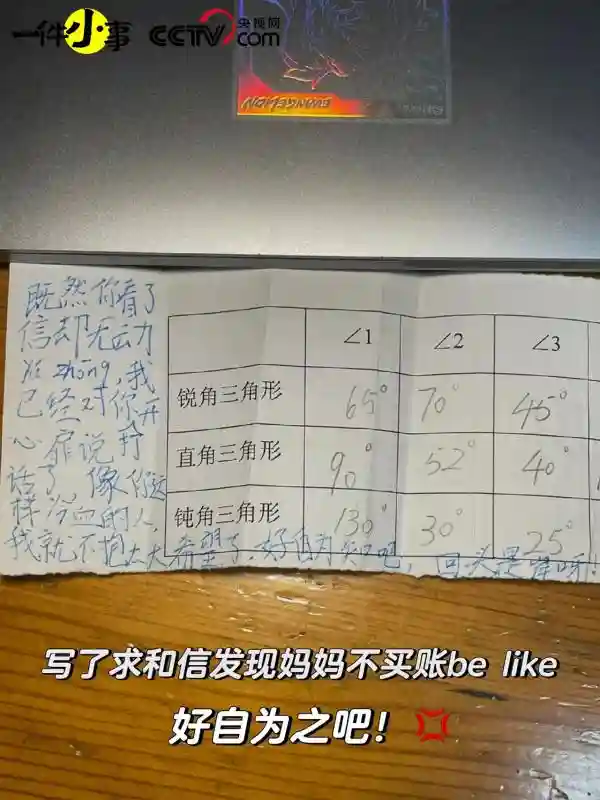 一件小事 CCTV 央视网 com
EVANGELION
既然你看了
信却无动
于zhōng,我
已经对你开
心扉说打
话了,像你这
样冷血的人,
我就不抱太大希望了.好自为知吧,回头是岸呀!
∠1 ∠2 ∠3
锐角三角形 65° 70° 45°
直角三角形 90° 52° 40°
钝角三角形 130° 30° 25°
写了求和信发现妈妈不买账be like
好自为之吧!